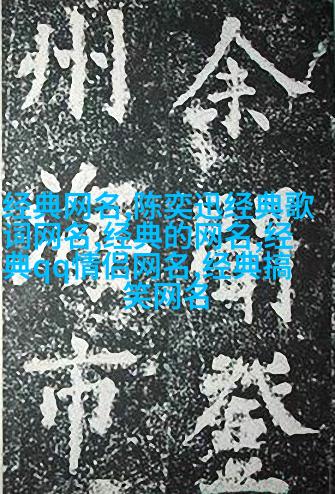 经典网名,陈奕迅经典歌
词网名,经典的网名,经
典qq情侣网名,经典搞
笑网名
余登
州市